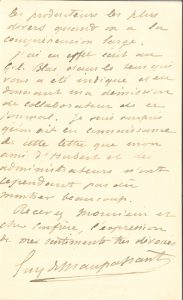 les producteurs les plus
divers quand on a la
compréhension large.
J'ai en effet écrit au
Gil Blas dans le sens qui
vous a été indiqué et en
donnant ma démission
de collaborateur de ce
journal. Je suis
qu'en connaissance
de cette lettre que mon
ami d'Hubert et les
administrateurs n'ont
cependant pas dû
montrer beaucoup.
Recevez Monsieur et
cher confrère, l'expression
de mes sentiments très dévoués
Guy de Maupassant